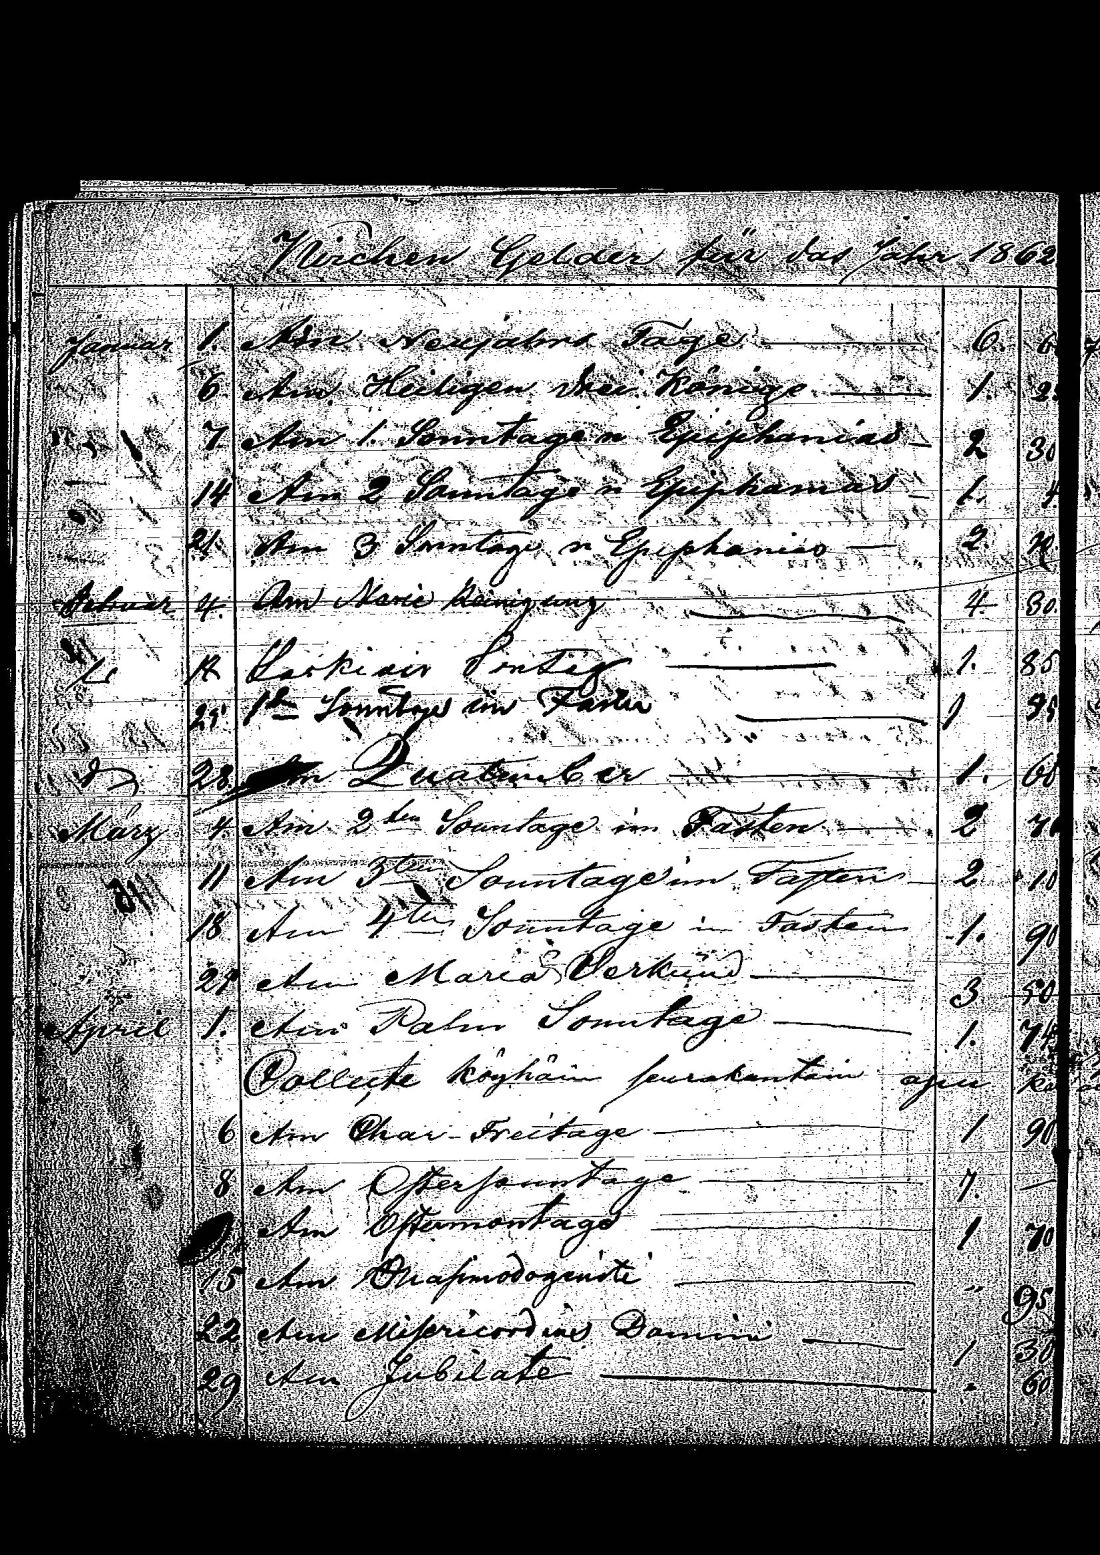 Kirchen Gelder für das Jahr 1862
Januar 1. Am Neujahrs Tage 6.
6. Am Heiligen drei Könige 1.
7. Am 1. Sonntage n Epiphanias 2 30
14 Am 2 Sonntage n Epiphanias 1.
21. Am 3 Sonntage n Epiphanias 2
Februar 4. Am Marie Reinigung 4 80.
1. 85
25 1ste Sonntage im Fasten 1 95
28. Am Quatember 1. 60
März 4. Am 2ten Sonntage im Fasten 2 70
11 Am 3ten Sonntage im Fasten 2 10
18 Am 4ten Sonntage in Fasten 1. 90
25 Am Maria Verkünd 3 50
April 1. Am Palm Sonntage 1. 74
Collecte köyhäin seurakuntain apu
6 Am Char-Freitage 1 90
8 Am Ostersonntage 7. —
Am Ostermontage 1 70
15 Am 〃 95
22 Am Misericordias Domini 1 30
29 Am Jubilate . 60